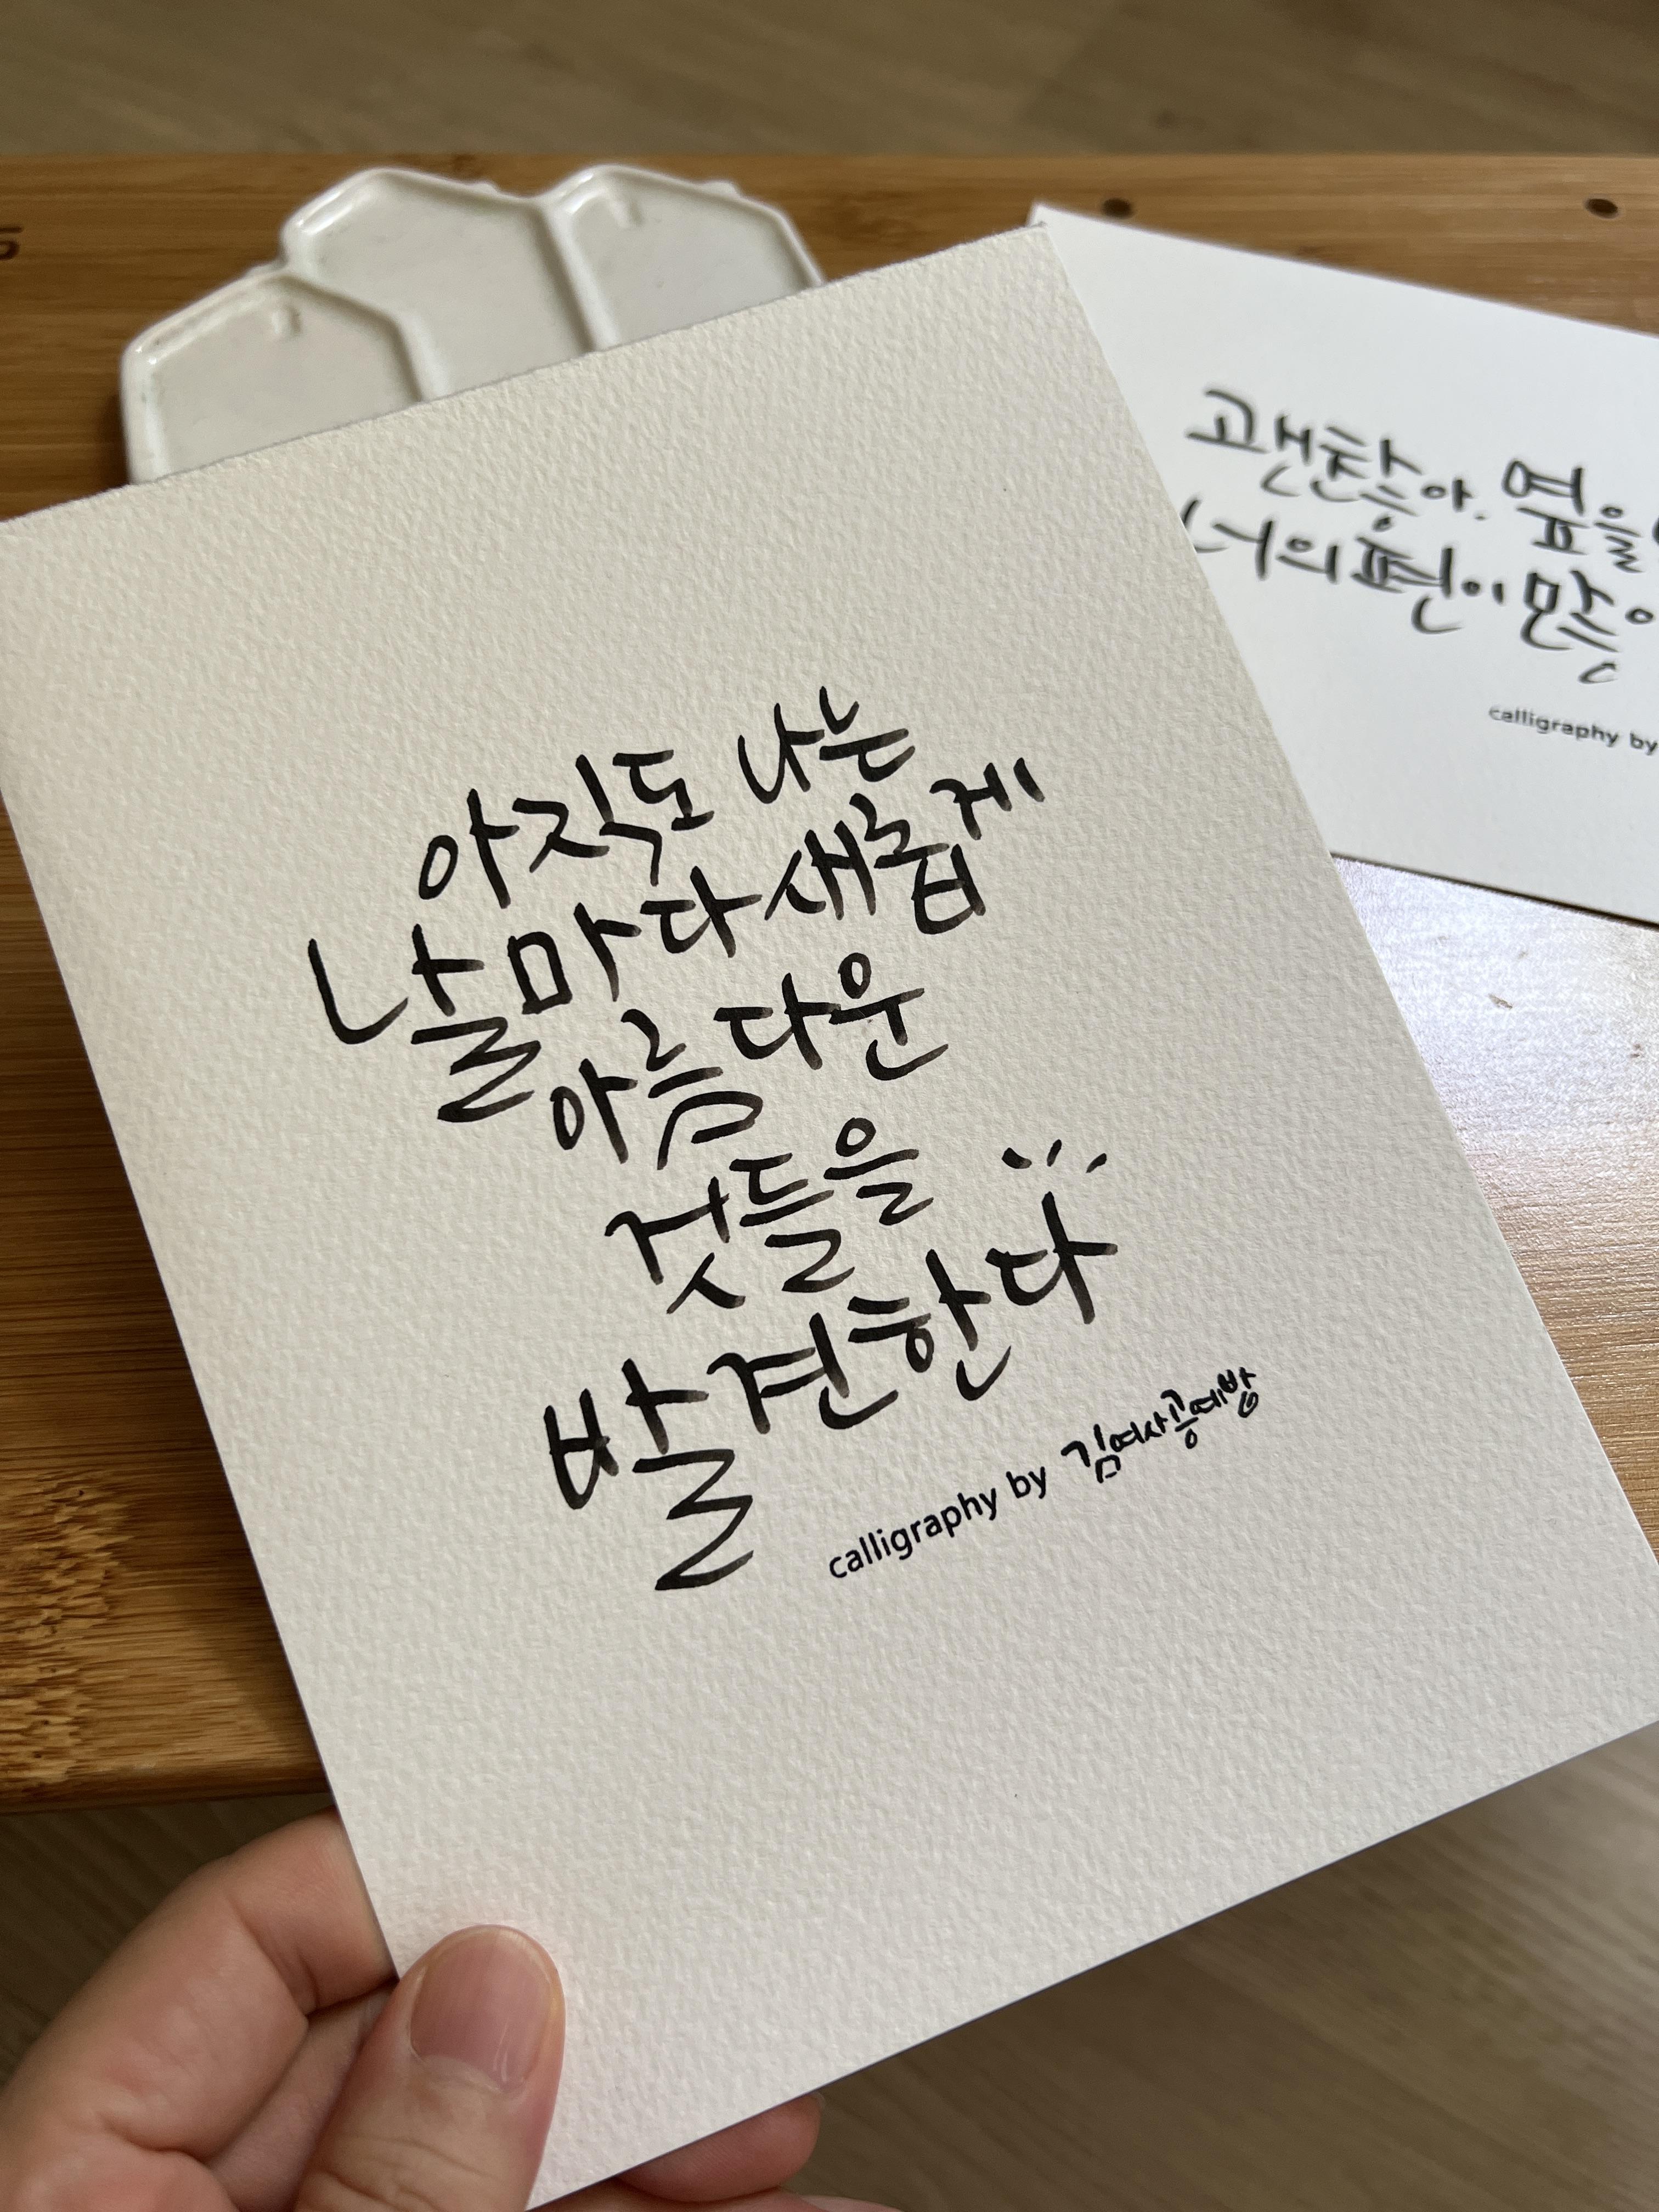 아직도 나는
날마다 새롭게
아름다운
것들을
발견한다
calligraphy by 김여사공예방
괜찮아. 봄을
너의 편이 많아
calligraphy by